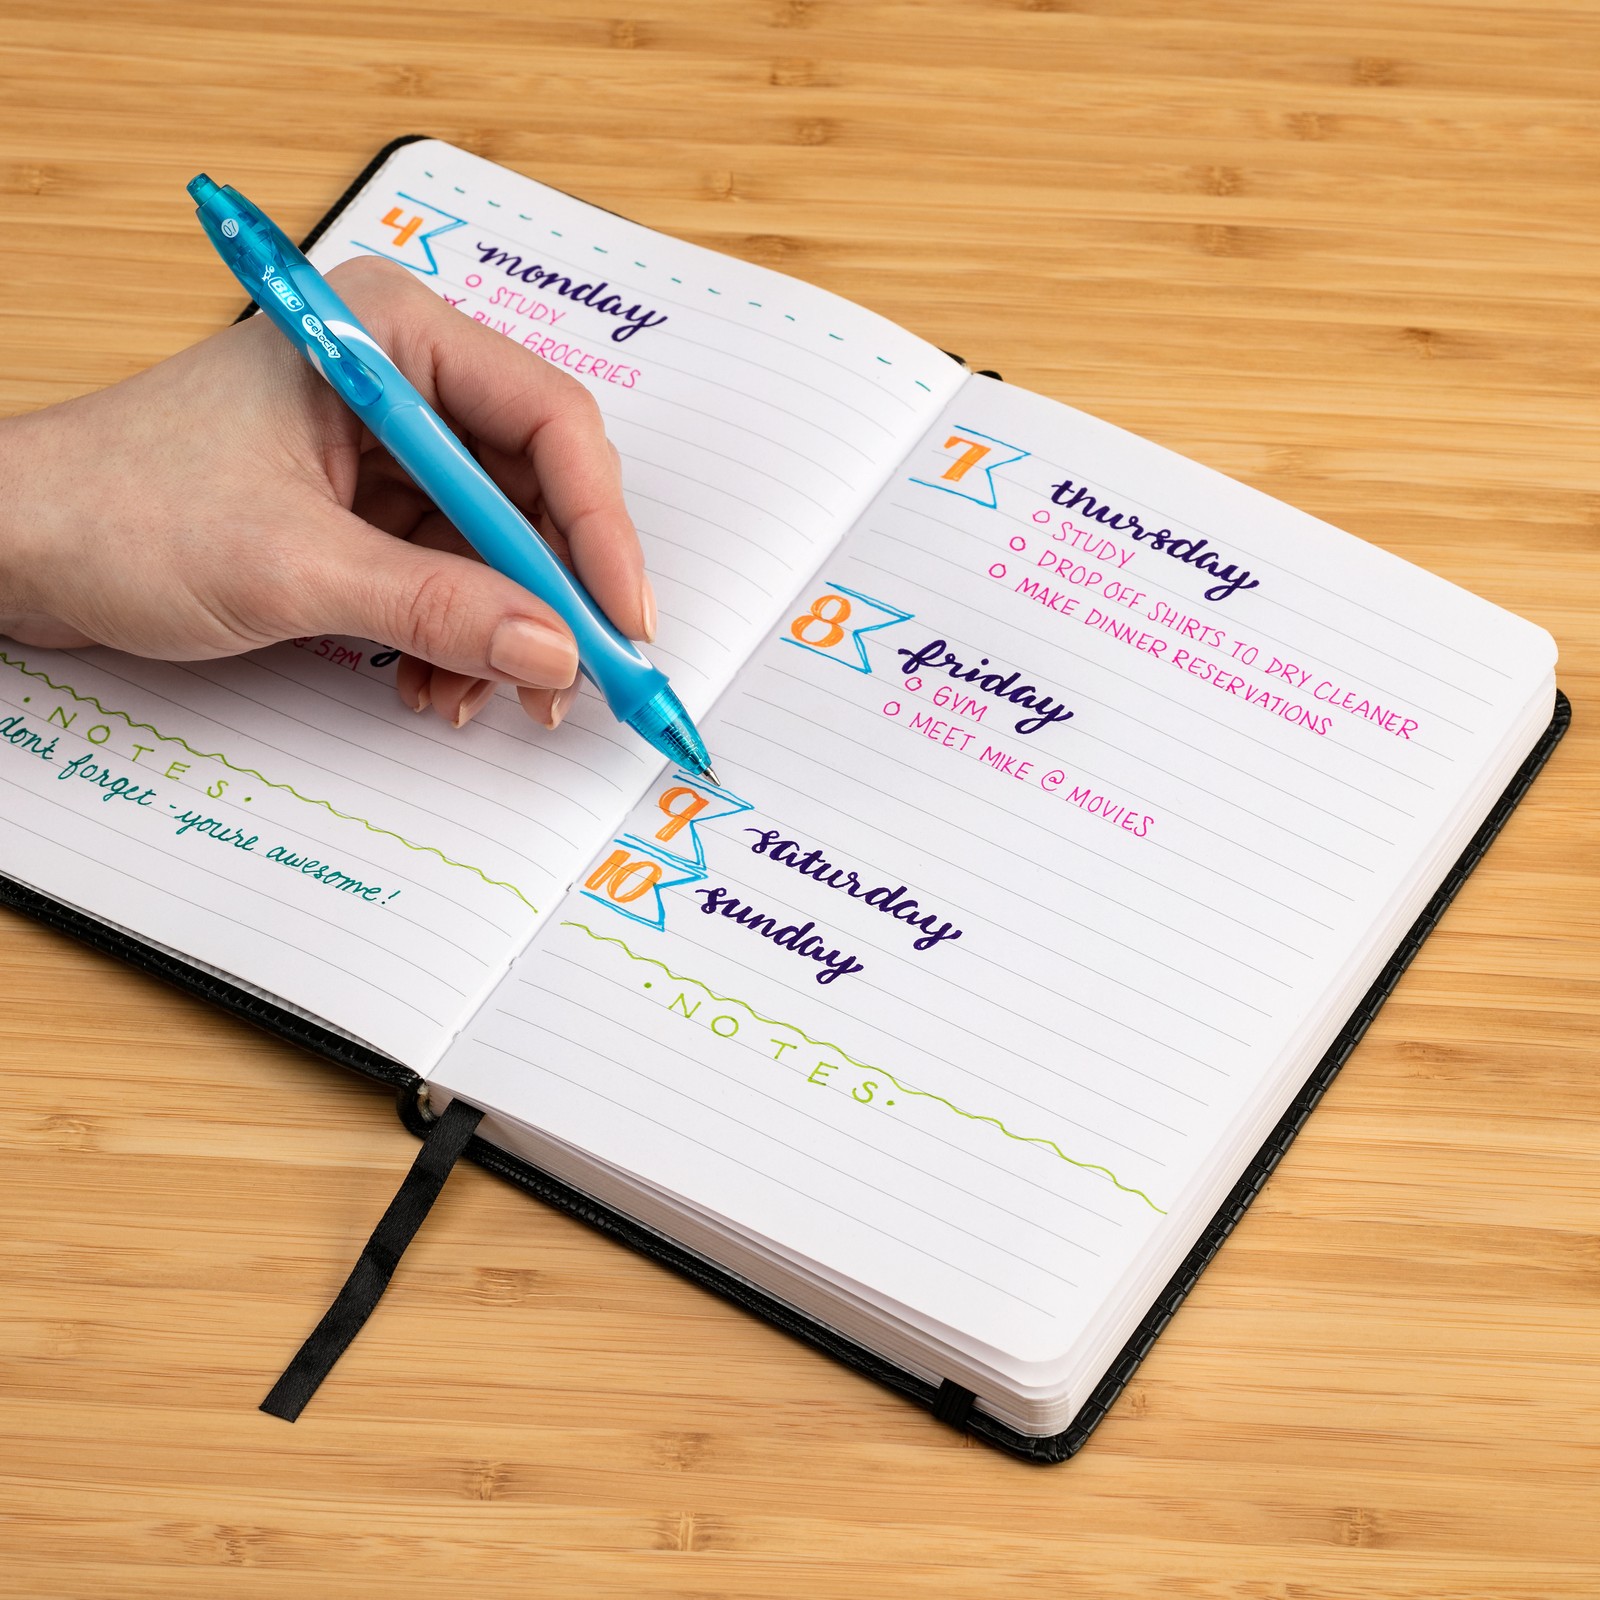 4 monday
STUDY
BUY GROCERIES
@ 5PM
• N O T E S •
don't forget - you're awesome!
7 thursday
STUDY
DROP OFF SHIRTS TO DRY CLEANER
MAKE DINNER RESERVATIONS
8 friday
GYM
MEET MIKE @ MOVIES
9 saturday
10 sunday
• N O T E S •
0.7
BIC
Gelocity